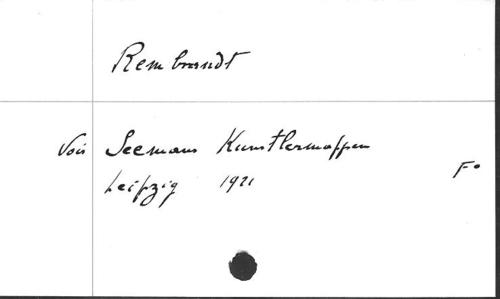 Rembrandt
Voir Seemans Kunstlermappen
Leipzig 1921
Fo